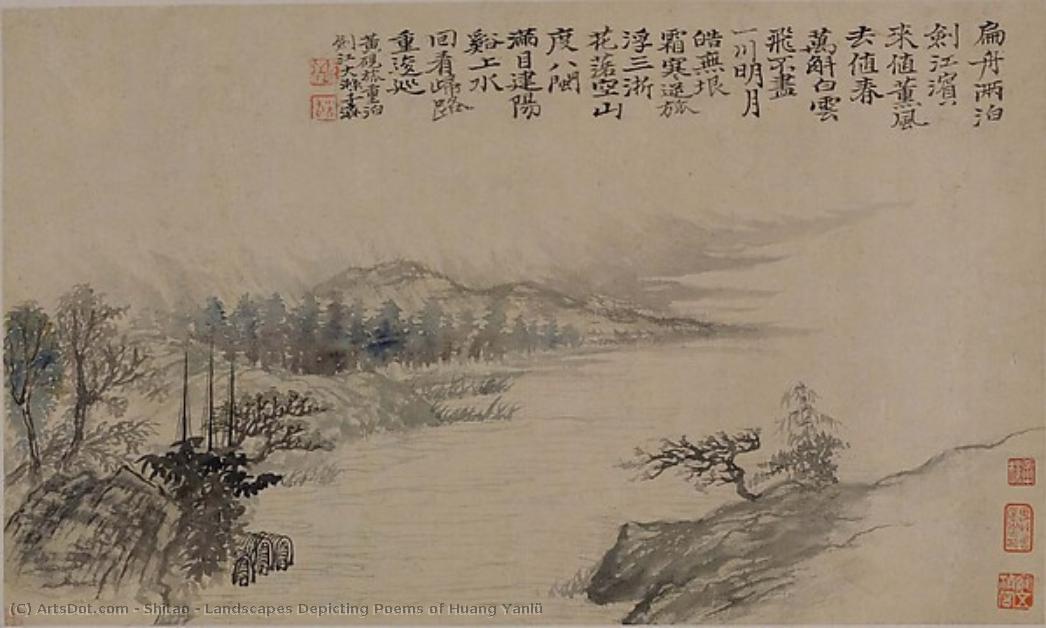 扁舟兩泊
劍江濱
來值薰風
去值春
萬斛白雲
飛不盡
一川明月
皓無垠
霜寒逆旅
浮三浙
花落空山
度八閩
滿目建陽
谿上水
回看歸路
重逡巡
黃硯旅重泊
劍江 大滌子濟
(C) ArtsDot.com - Shitao - Landscapes Depicting Poems of Huang Yanlü